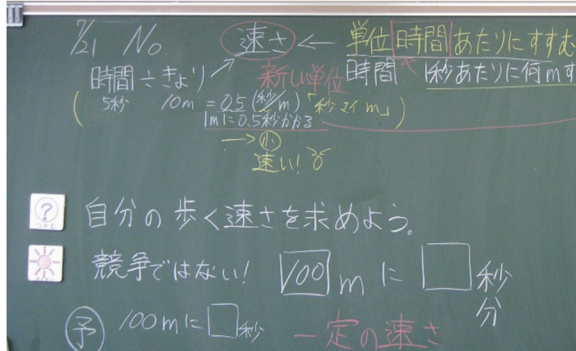 7/21 No. 速さ ← 単位時間あたりにすすむ
時間÷きょり 新しい単位 時間 1秒あたりに何mす
(5秒 10m = 0.5 (秒/m) 「秒マイm」)
1mに0.5秒かかる
→小
速い!
?
自分の歩く速さを求めよう。
競争ではない! 100mに□秒
分
予 100mに□秒 一定の速さ